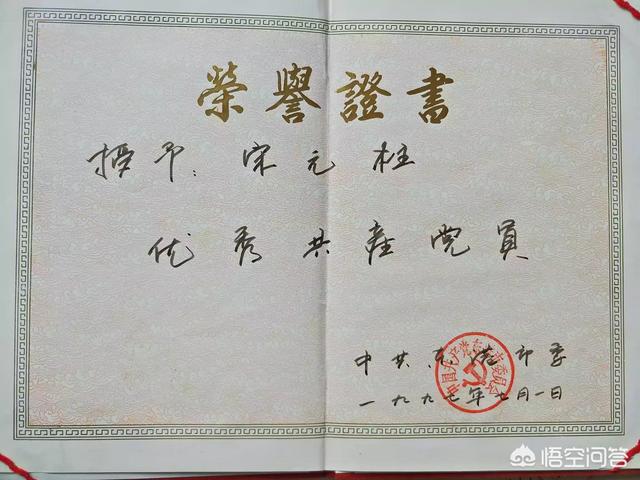 榮譽證書
授予：宋元柱
优秀共産党员
中共东港市委
一九九七年七月一日
悟空问答